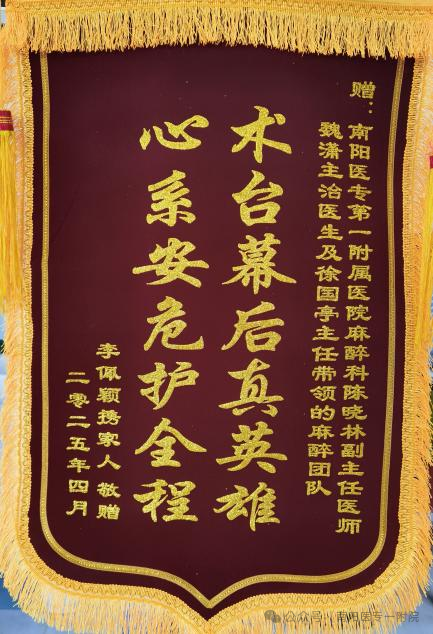 赠：南阳医专第一附属医院麻醉科陈晓林副主任医师
魏潇主治医生及徐国亭主任带领的麻醉团队
术台幕后真英雄
心系安危护全程
李佩颖携家人 敬赠
二零二五年四月
公众号·南阳医专一附院